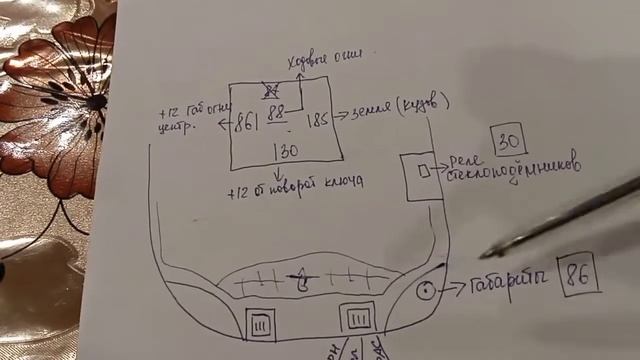 ходовые огни.
+12 габ огни
центр.
87
86 88 185
земля (кузов)
130
+12 от поворот ключа
реле
стеклоподъёмников
30
габариты 86